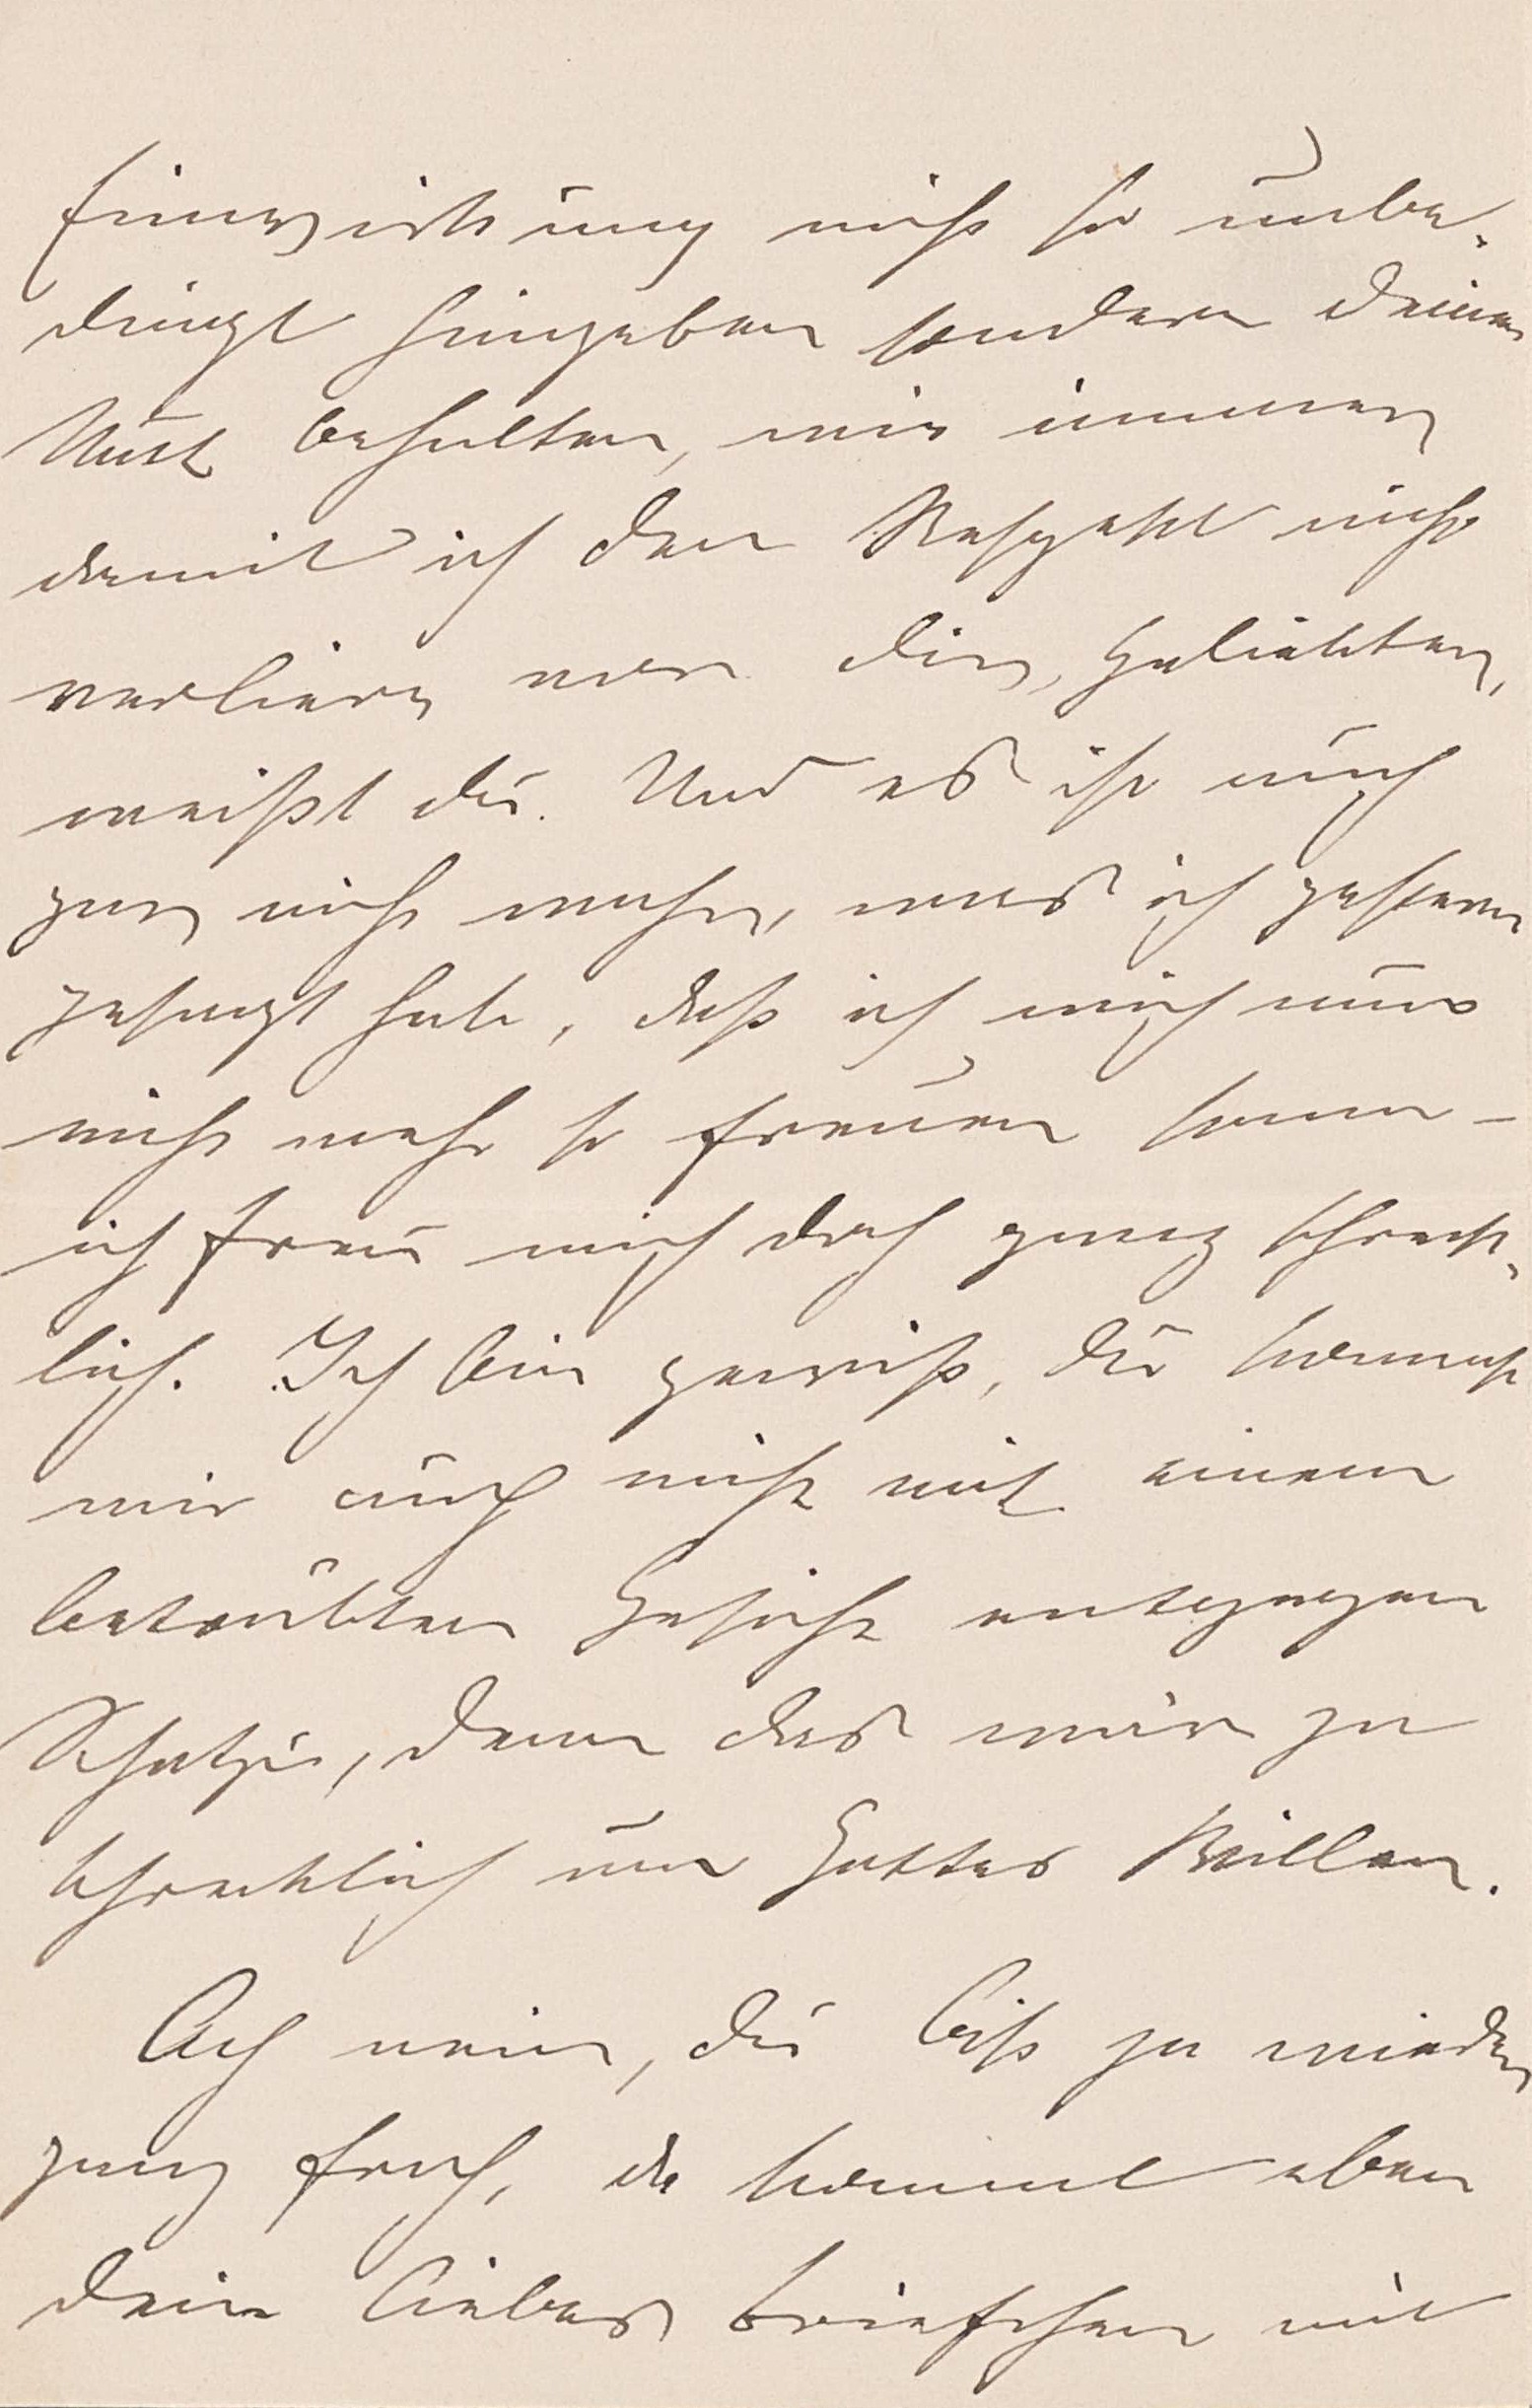 Einwirkung nicht so unbe-
dingt hingeben sondern Deinen
Mut behalten, wie immer
damit ich den Respekt nicht
verliere vor dir, Geliebter,
weißt du. Und es ist auch
gar nicht wahr, was ich gestern
gesagt hab, daß ich mich nun
nicht mehr so freuen kann –
ich freu mich doch ganz schreck-
lich. Ich bin gewiß, du kommst
mir auch nicht mit einem
betrübten Gesicht entgegen
Schatzi, denn das wär ja
schrecklich um Gottes Willen.
Ach nein, du bist ja wieder
ganz froh, da kommt eben
dein liebes Briefchen mit